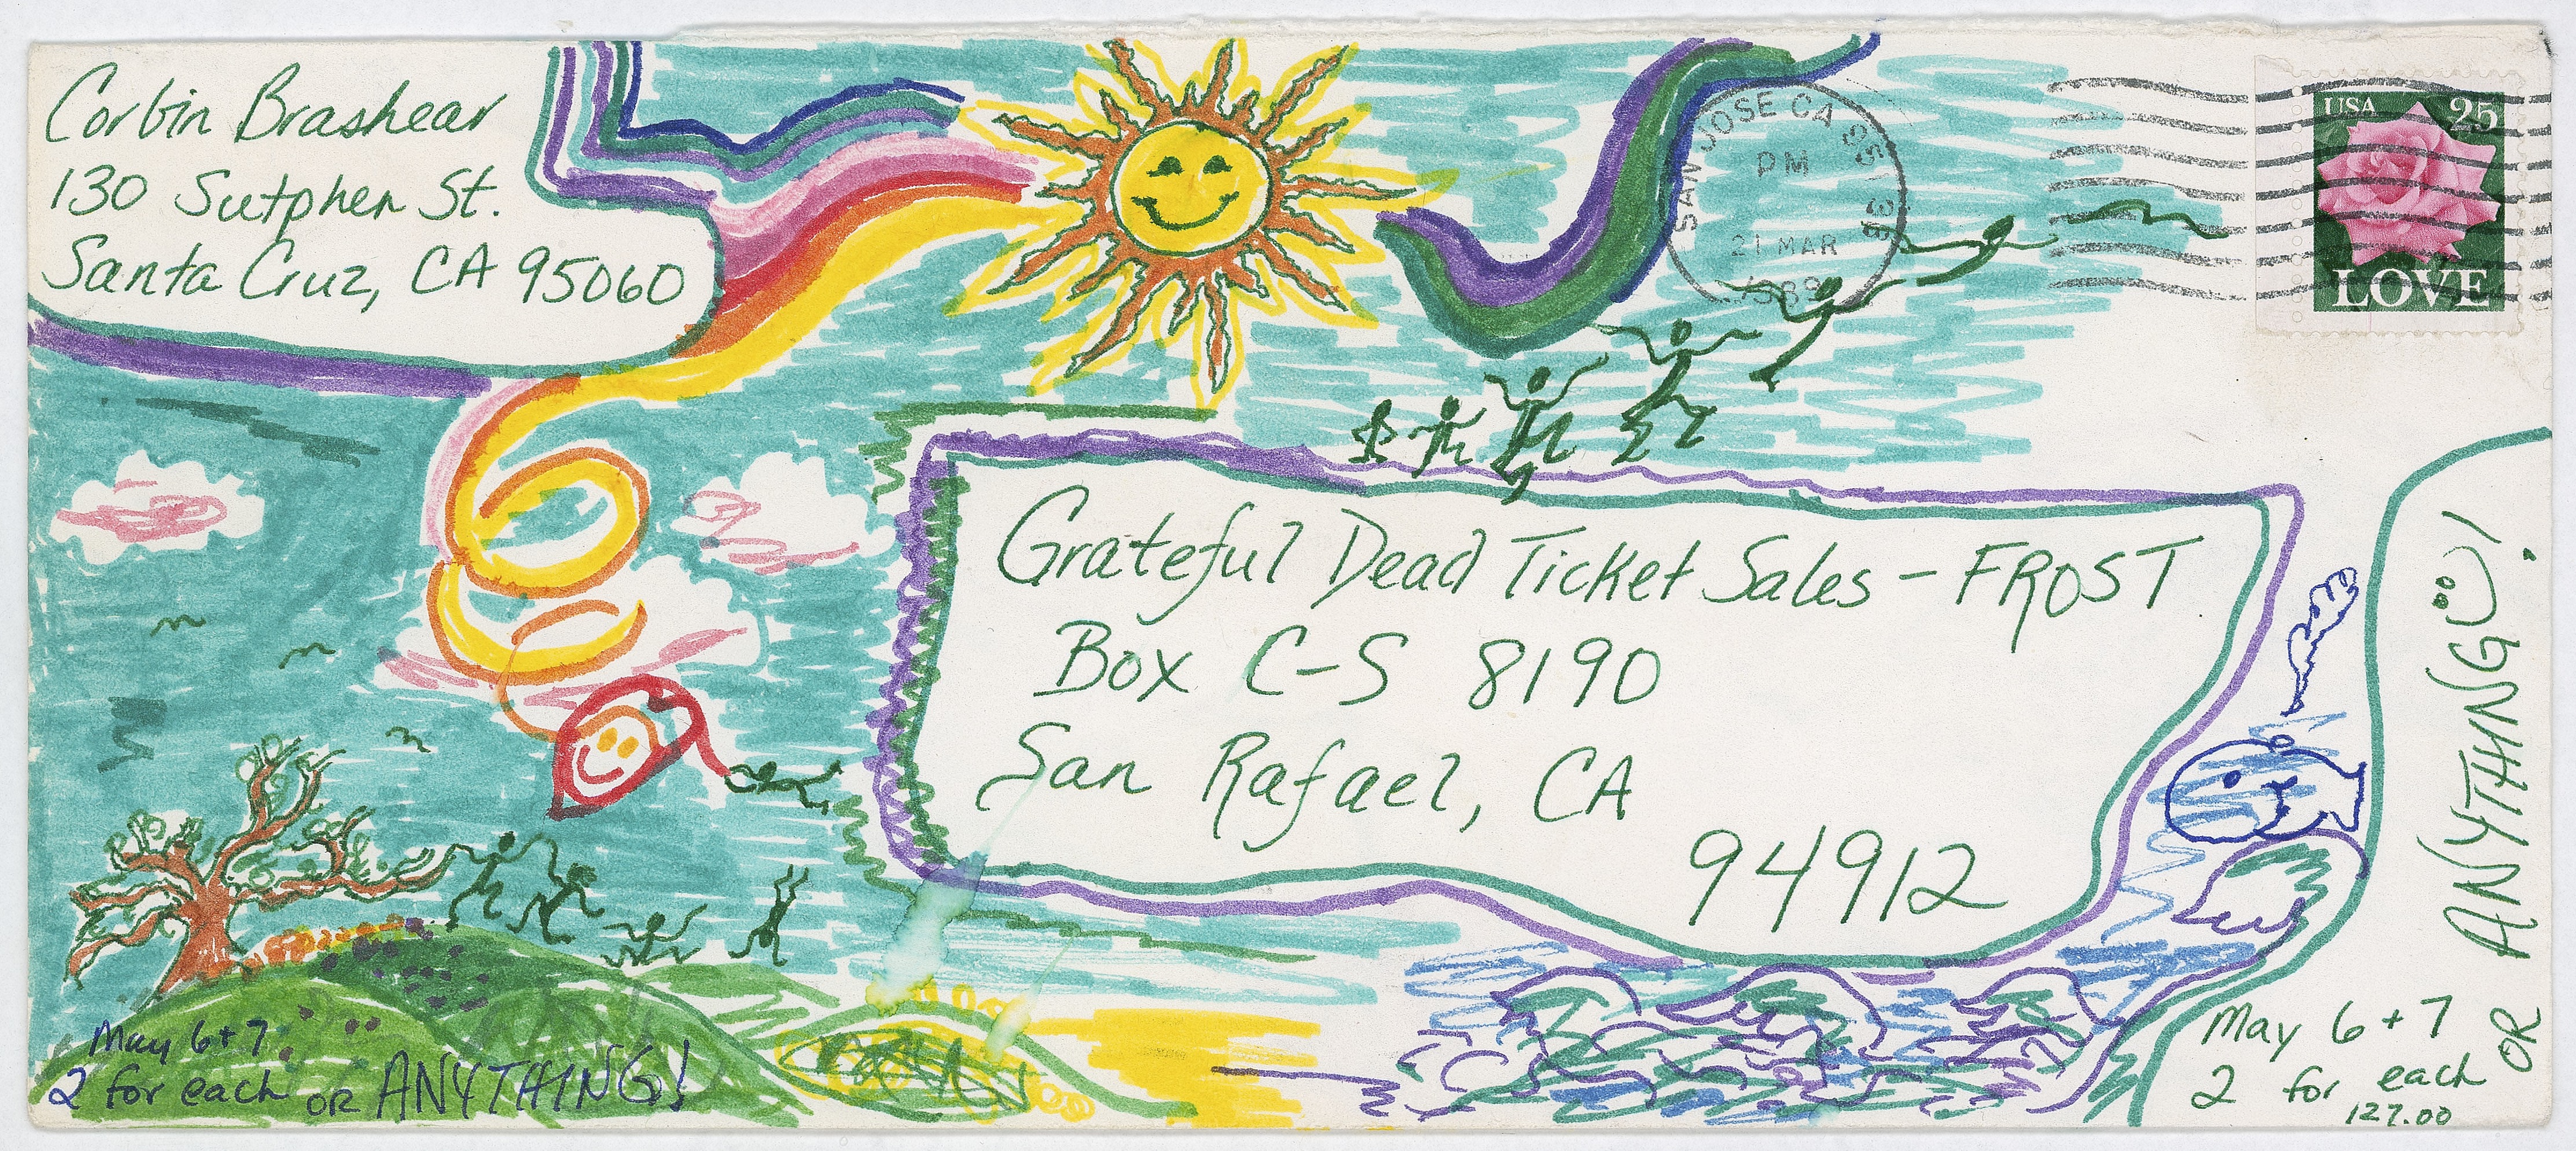 Corbin Brashear
130 Sutphen St.
Santa Cruz, CA 95060
SAN JOSE CA 951
PM
21 MAR
1989
USA 25
LOVE
Grateful Dead Ticket Sales - FROST
Box C-S 8190
San Rafael, CA
94912
May 6+7
2 for each OR ANYTHING!
May 6+7
2 for each
127.00
OR ANYTHING!